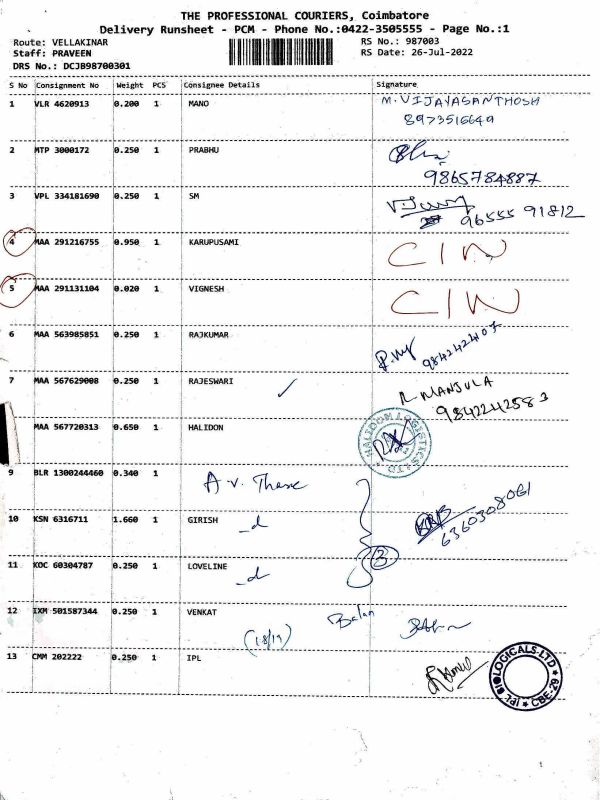 THE PROFESSIONAL COURIERS, Coimbatore
Delivery Runsheet - PCM - Phone No.:0422-3505555 - Page No.:1
Route: VELLAKINAR RS No.: 987003
Staff: PRAVEEN RS Date: 26-Jul-2022
DRS No.: DCJB98700301
S No Consignment No Weight PCS Consignee Details Signature
1 VLR 4620913 0.200 1 MANO M. VIJAYASANTHOSH
8973516649
2 MTP 3000172 0.250 1 PRABHU
9865784887
3 VPL 334181690 0.250 1 SM
96555 91812
4 MAA 291216755 0.950 1 KARUPUSAMI CIN
5 MAA 291131104 0.020 1 VIGNESH CIN
6 MAA 563985851 0.250 1 RAJKUMAR
9842422407
7 MAA 567629008 0.250 1 RAJESWARI R MANJULA
9842242583
MAA 567720313 0.650 1 HALIDON
HALIDOM LOGISTICS LTD
9 BLR 1300244460 0.340 1
A v.
10 KSN 6316711 1.660 1 GIRISH
6360308061
11 KOC 60304787 0.250 1 LOVELINE
3
12 IXM 501587344 0.250 1 VENKAT Balan
(18/19)
13 CMM 202222 0.250 1 IPL
IPL BIOLOGICALS LTD
CBE-29